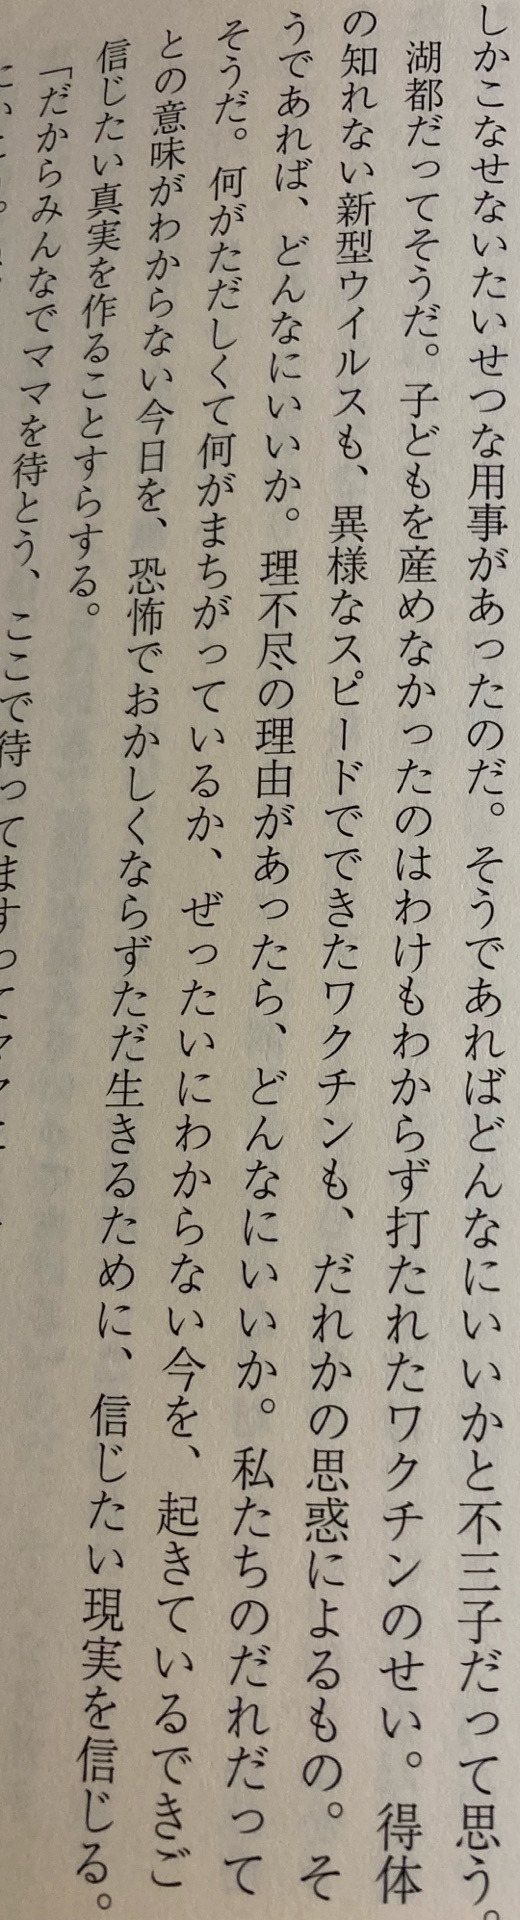 しかこなせないたいせつな用事があったのだ。そうであればどんなにいいかと不三子だって思う。
湖都だってそうだ。子どもを産めなかったのはわけもわからず打たれたワクチンのせい。得体
の知れない新型ウイルスも、異様なスピードでできたワクチンも、だれかの思惑によるもの。そ
うであれば、どんなにいいか。理不尽の理由があったら、どんなにいいか。私たちのだれだって
そうだ。何がただしくて何がまちがっているか、ぜったいにわからない今を、起きているできご
との意味がわからない今日を、恐怖でおかしくならずただ生きるために、信じたい現実を信じる。
信じたい真実を作ることすらする。
「だからみんなでママを待とう、ここで待ってますってママに